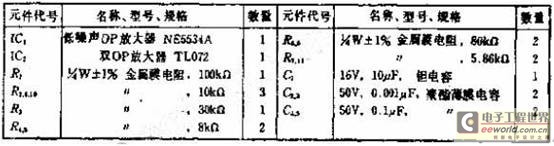 元件代号 名称、型号、规格 数量
IC₁ 低噪声OP放大器 NE5534A 1
IC₂ 双OP放大器 TL072 1
¼W±1% 金属膜电阻, 100kΩ 1
〃 10kΩ 3
R₃ 〃 30kΩ 1
〃 8kΩ 2
元件代号 名称、型号、规格 数量
¼W±1% 金属膜电阻, 80kΩ 2
〃 5.86kΩ 2
C₁ 16V, 10μF, 钽电容 1
C₂,₃ 50V, 0.001μF, 聚酯薄膜电容 2
C₄,₅ 50V, 0.1μF, 〃 2
电子工程世界
eeworld.com.cn